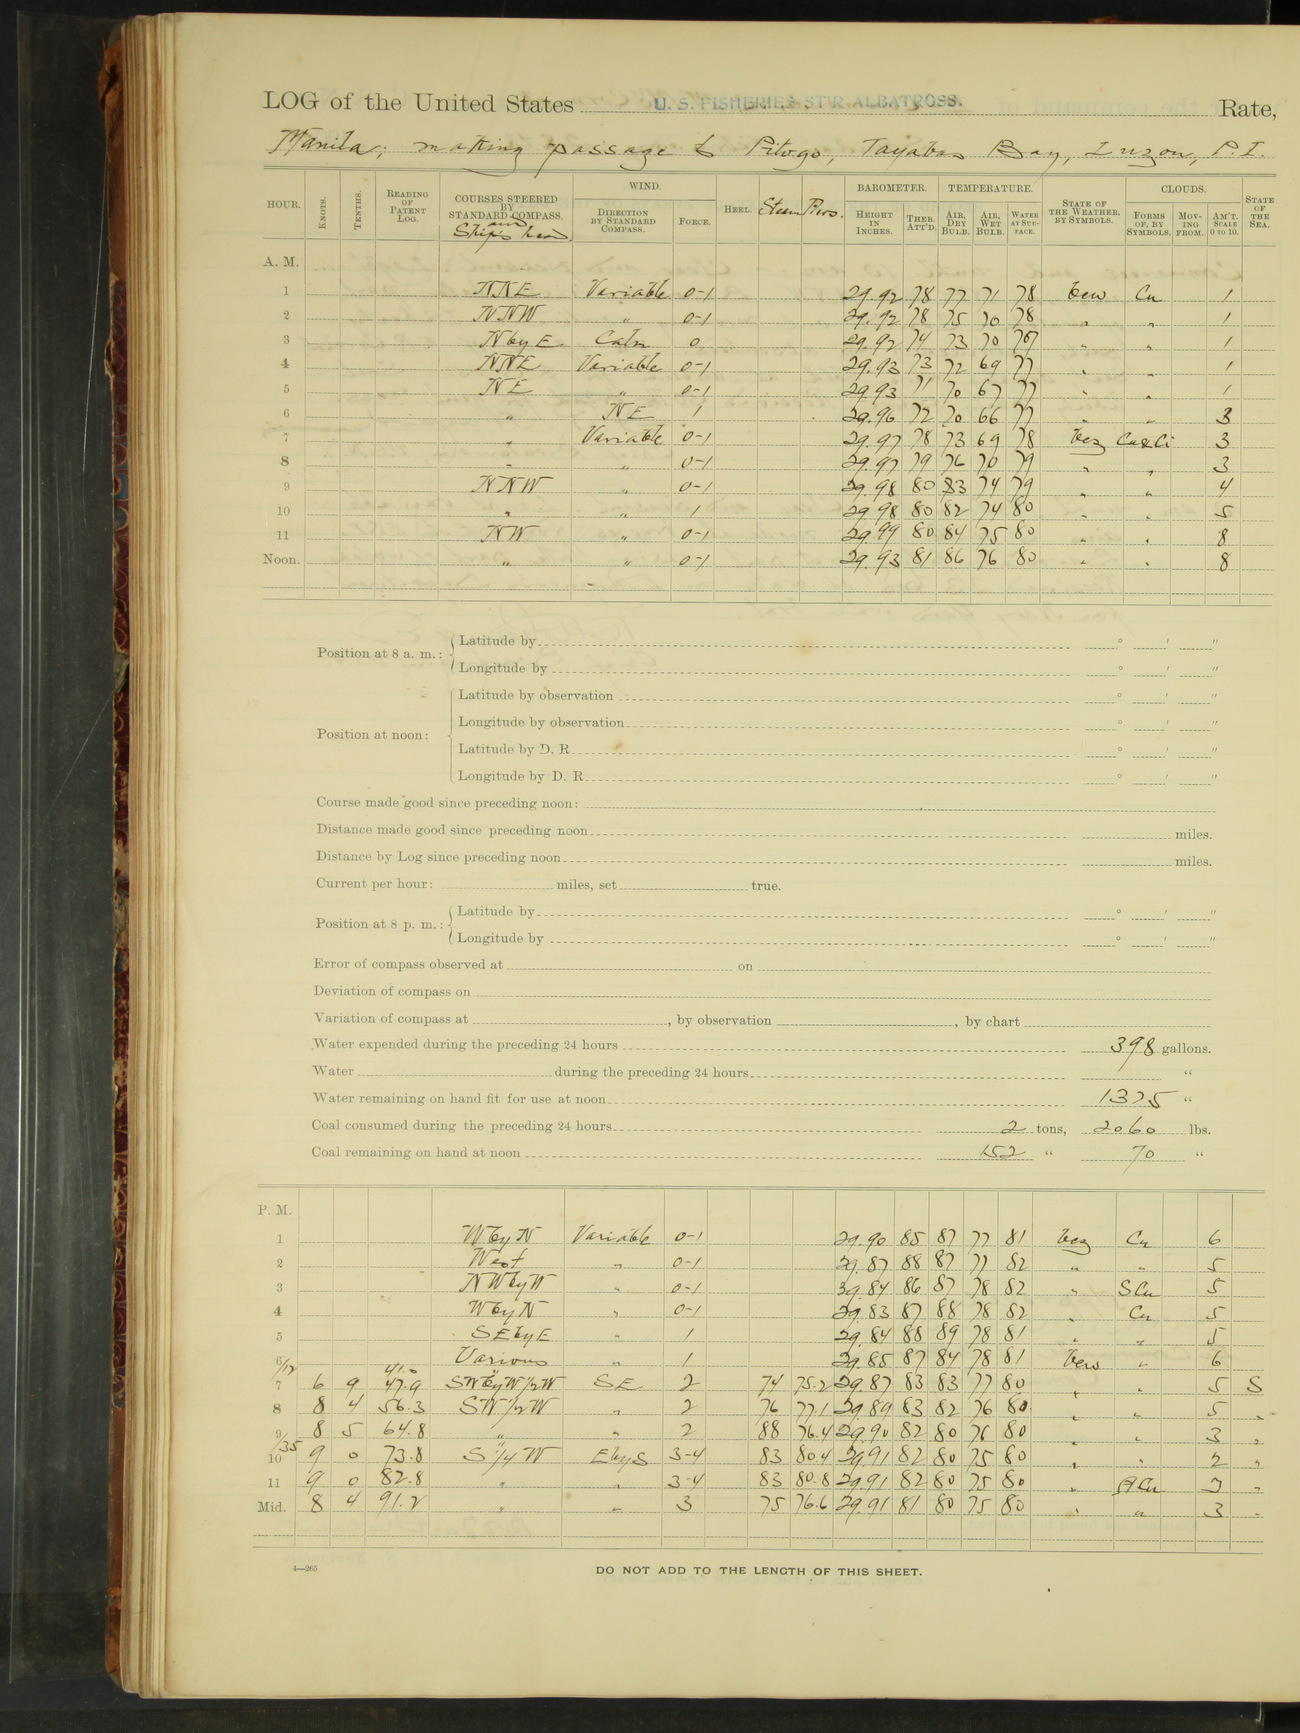 LOG of the United States U. S. FISHERIES ST'R ALBATROSS. Rate,
Manila; making passage to Pitogo, Tayabas Bay, Luzon, P.I.
HOUR. KNOTS. TENTHS. READING OF PATENT LOG. COURSES STEERED BY STANDARD COMPASS. and Ship's head WIND. DIRECTION BY STANDARD COMPASS. FORCE. HEEL. Steam Revs. BAROMETER. HEIGHT IN INCHES. THER. ATT'D. TEMPERATURE. AIR, DRY BULB. AIR, WET BULB. WATER AT SURFACE. STATE OF THE WEATHER, BY SYMBOLS. CLOUDS. FORMS OF, BY SYMBOLS. MOVING FROM. AM'T. SCALE 0 TO 10. STATE OF THE SEA.
A. M.
1 NNE Variable 0-1 29.92 78 77 71 78 bcw Cu 1
2 NNW " 0-1 29.92 78 75 70 78 " " 1
3 NbyE Calm 0 29.92 74 73 70 " " 1
4 NNE Variable 0-1 29.93 73 72 69 77 " " 1
5 NE " 0-1 29.93 71 70 67 77 " " 1
6 " NE 1 29.96 72 70 66 77 " " 3
7 " Variable 0-1 29.97 78 73 69 78 bcz Cu&Ci 3
8 " " 0-1 29.97 79 76 70 79 " " 3
9 NNW " 0-1 29.98 80 83 74 79 " " 4
10 " " 1 29.98 80 82 74 80 " " 5
11 NW " 0-1 29.99 80 84 75 80 " " 8
Noon. " " 0-1 29.93 81 86 76 80 " " 8
Position at 8 a. m.: Latitude by ° ' "
Longitude by ° ' "
Position at noon: Latitude by observation ° ' "
Longitude by observation ° ' "
Latitude by D. R. ° ' "
Longitude by D. R. ° ' "
Course made good since preceding noon:
Distance made good since preceding noon miles.
Distance by Log since preceding noon miles.
Current per hour: miles, set true.
Position at 8 p. m.: Latitude by ° ' "
Longitude by ° ' "
Error of compass observed at on
Deviation of compass on
Variation of compass at , by observation , by chart
Water expended during the preceding 24 hours 398 gallons.
Water during the preceding 24 hours "
Water remaining on hand fit for use at noon 1375 "
Coal consumed during the preceding 24 hours 2 tons, 2060 lbs.
Coal remaining on hand at noon 152 " 70 "
P. M.
1 WbyN Variable 0-1 29.90 85 87 77 81 bcz Cu 6
2 West " 0-1 29.87 88 87 77 82 " " 5
3 NWbyW " 0-1 29.84 86 87 78 82 " SCu 5
4 WbyN " 0-1 29.83 87 88 78 82 " Cu 5
5 SEbyE " 1 29.84 88 89 78 81 " " 5
6/12 41.0 Various " 1 29.85 87 84 78 81 bcw " 6
7 6 9 47.9 SWbyW1/2W SE 2 74 75.2 29.87 83 83 77 80 " " 5 S
8 8 4 56.3 SW1/2W " 2 76 77.1 29.89 83 82 76 80 " " 5 "
9/35 8 5 64.8 " " 2 88 76.4 29.90 82 80 76 80 " " 3 "
10 9 0 73.8 S1/4W EbyS 3-4 83 80.4 29.91 82 80 75 80 " " 2 "
11 9 0 82.8 " " 3-4 83 80.8 29.91 82 80 75 80 " ACu 3 "
Mid. 8 4 91.2 " " 3 75 76.6 29.91 81 80 75 80 " " 3 "
4—265
DO NOT ADD TO THE LENGTH OF THIS SHEET.